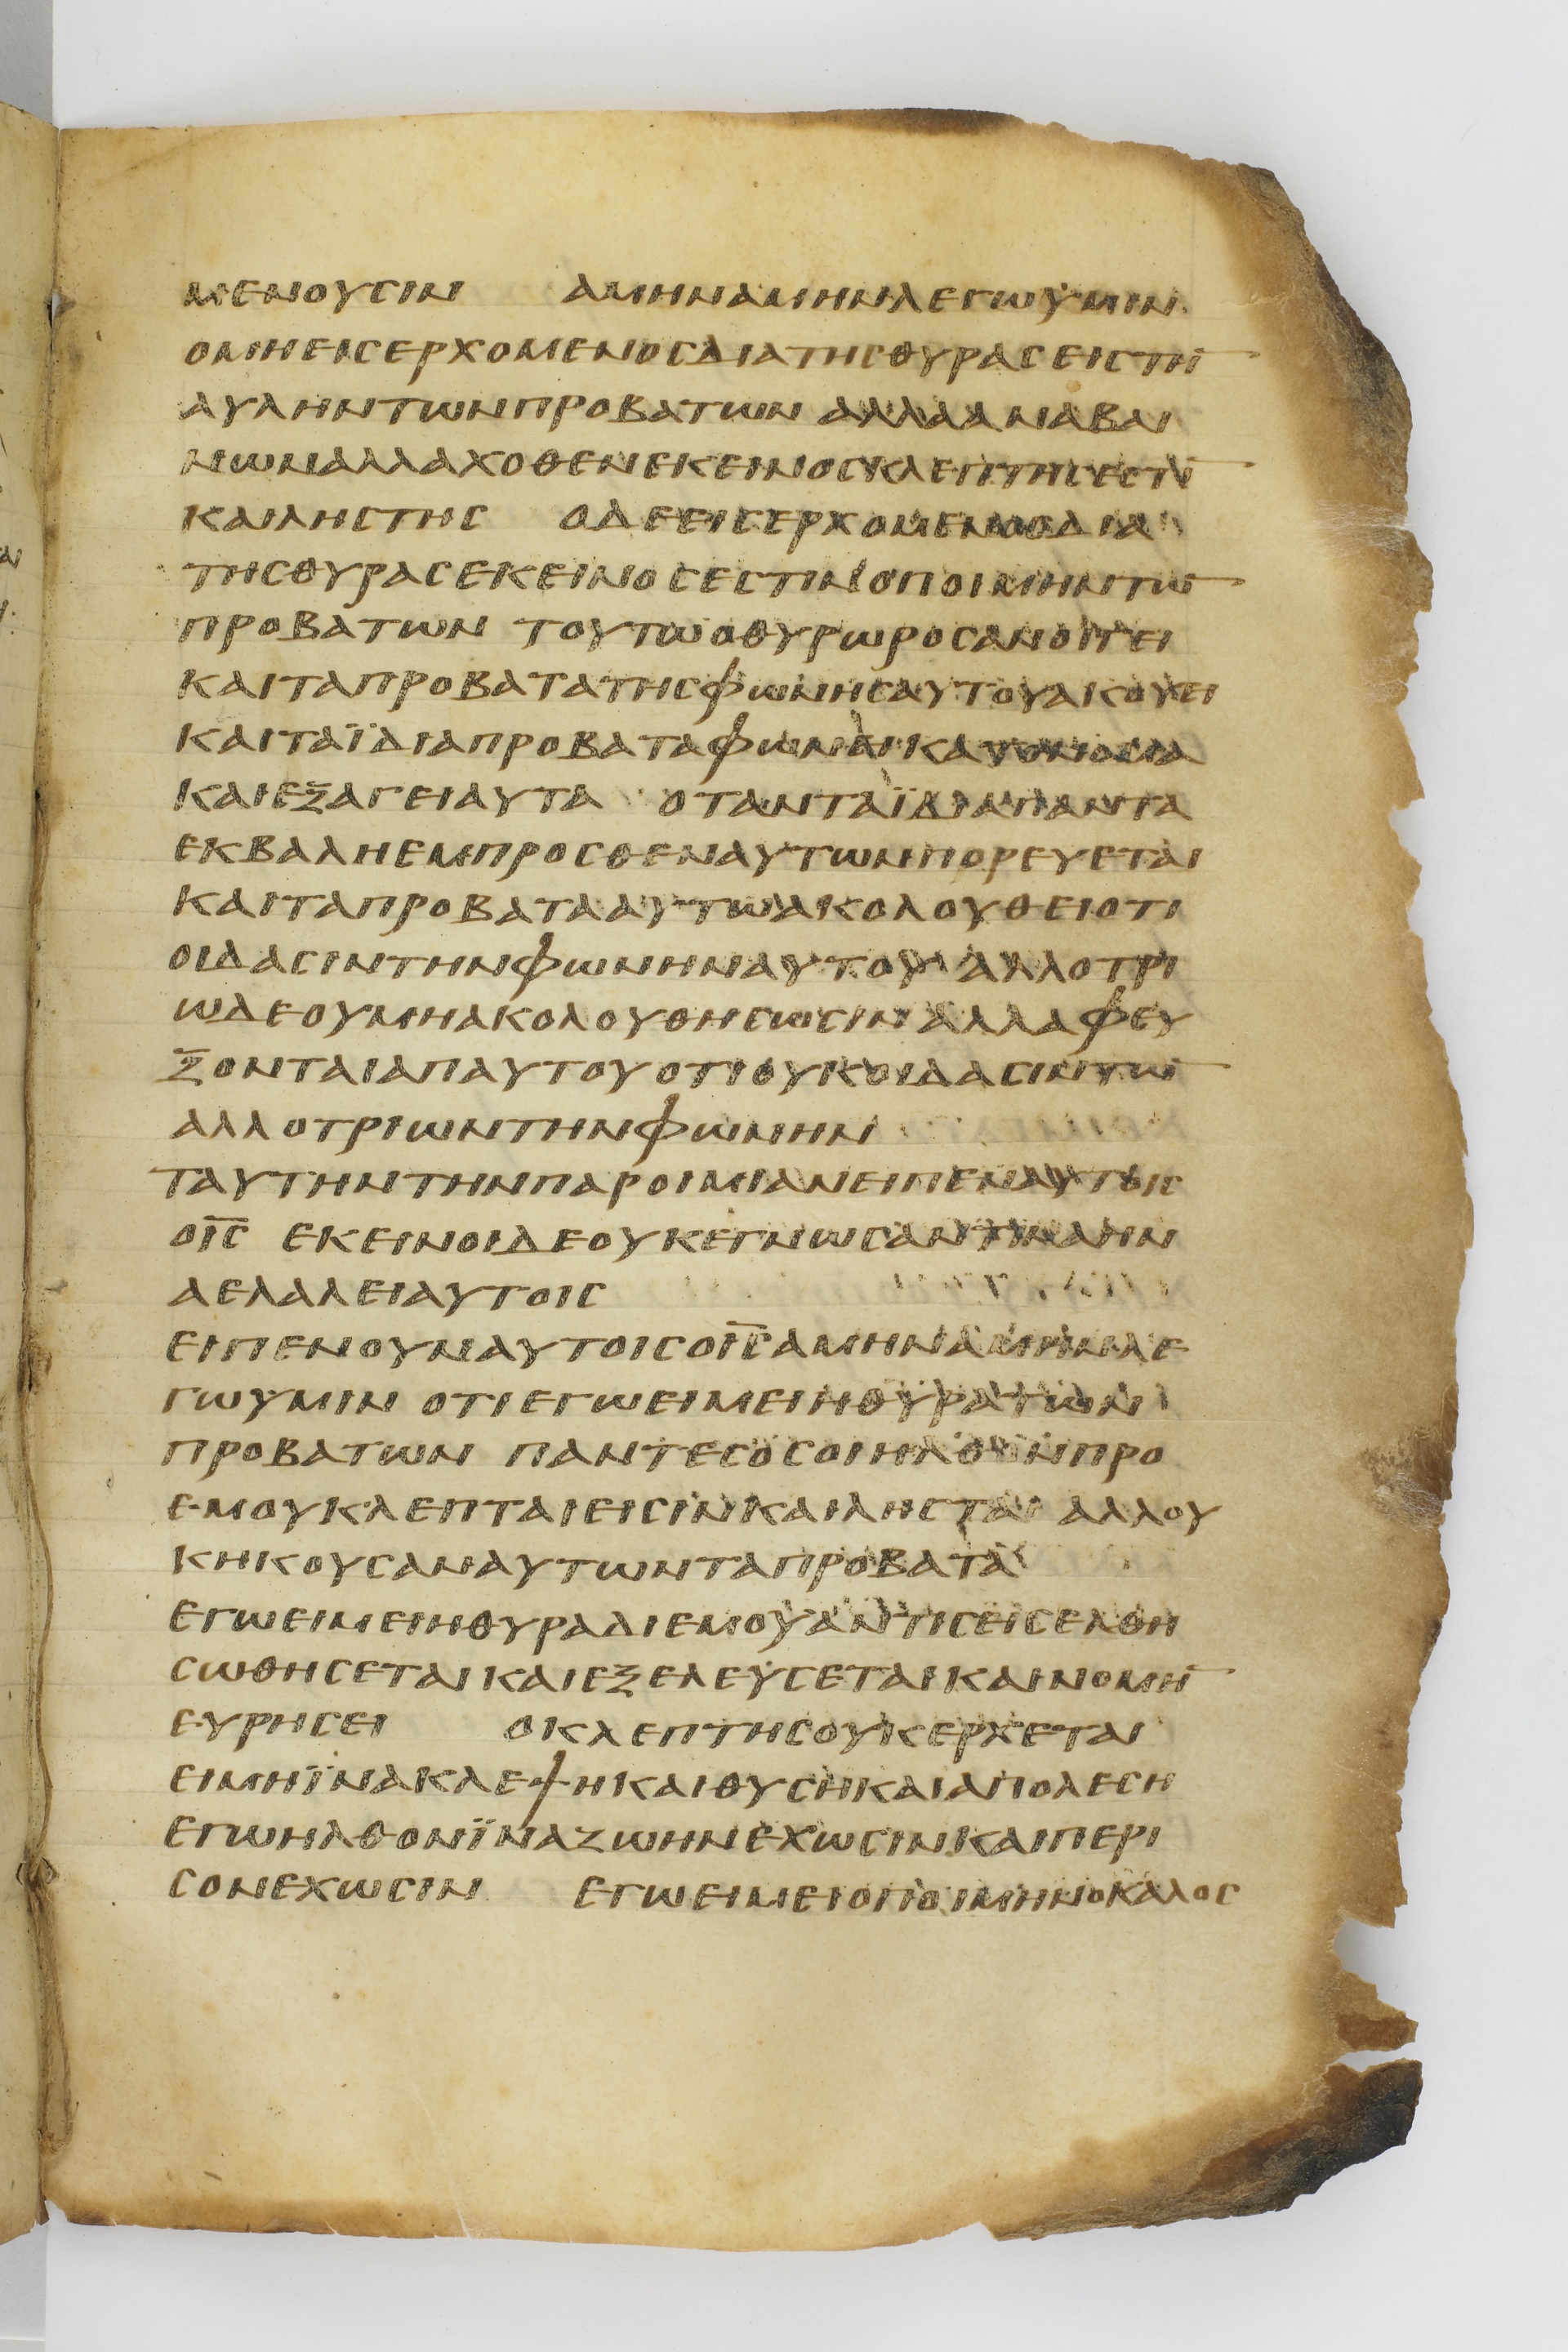 ΜΕΝΟΥϹΙΝ ΑΜΗΝΑΜΗΝΛΕΓΩΥΜΙΝ
ΟΜΗΕΙϹΕΡΧΟΜΕΝΟϹΔΙΑΤΗϹΘΥΡΑϹΕΙϹΤΗ̅
ΑΥΛΗΝΤΩΝΠΡΟΒΑΤΩΝ ΑΛΛΑΑΝΑΒΑΙ
ΝΩΝΑΛΛΑΧΟΘΕΝΕΚΕΙΝΟϹΚΛΕΠΤΗϹΕϹΤΙ̅
ΚΑΙΛΗϹΤΗϹ ΟΔΕΕΙϹΕΡΧΟΜΕΝΟϹΔΙΑ
ΤΗϹΘΥΡΑϹΕΚΕΙΝΟϹΕϹΤΙΝΟΠΟΙΜΗΝΤΩ̅
ΠΡΟΒΑΤΩΝ ΤΟΥΤΩΟΘΥΡΩΡΟϹΑΝΟΙΓΕΙ
ΚΑΙΤΑΠΡΟΒΑΤΑΤΗϹΦΩΝΗϹΑΥΤΟΥΑΚΟΥΕΙ
ΚΑΙΤΑΪΔΙΑΠΡΟΒΑΤΑΦΩΝΕΙΚΑΤΟΝΟΜΑ
ΚΑΙΕΞΑΓΕΙΑΥΤΑ ΟΤΑΝΤΑΪΔΙΑΠΑΝΤΑ
ΕΚΒΑΛΗΕΜΠΡΟϹΘΕΝΑΥΤΩΝΠΟΡΕΥΕΤΑΙ
ΚΑΙΤΑΠΡΟΒΑΤΑΑΥΤΩΑΚΟΛΟΥΘΕΙΟΤΙ
ΟΙΔΑϹΙΝΤΗΝΦΩΝΗΝΑΥΤΟΥ ΑΛΛΟΤΡΙ
ΩΔΕΟΥΜΗΑΚΟΛΟΥΘΗϹΩϹΙΝ ΑΛΛΑΦΕΥ
ΞΟΝΤΑΙΑΠΑΥΤΟΥΟΤΙΟΥΚΟΙΔΑϹΙΝΤΩ̅
ΑΛΛΟΤΡΙΩΝΤΗΝΦΩΝΗΝ
ΤΑΥΤΗΝΤΗΝΠΑΡΟΙΜΙΑΝΕΙΠΕΝΑΥΤΟΙϹ
ΟΙ̅Ϲ̅ ΕΚΕΙΝΟΙΔΕΟΥΚΕΓΝΩϹΑΝΤΙΝΑΗΝ
ΑΕΛΑΛΕΙΑΥΤΟΙϹ
ΕΙΠΕΝΟΥΝΑΥΤΟΙϹΟΙ̅Ϲ̅ΑΜΗΝΑΜΗΝΛΕ
ΓΩΥΜΙΝ ΟΤΙΕΓΩΕΙΜΕΙΗΘΥΡΑΤΩΝ
ΠΡΟΒΑΤΩΝ ΠΑΝΤΕϹΟϹΟΙΗΛΘΟΝΠΡΟ
ΕΜΟΥΚΛΕΠΤΑΙΕΙϹΙΝΚΑΙΛΗϹΤΑΙ ΑΛΛΟΥ
ΚΗΚΟΥϹΑΝΑΥΤΩΝΤΑΠΡΟΒΑΤΑ
ΕΓΩΕΙΜΕΙΗΘΥΡΑΔΙΕΜΟΥΑΝΤΙϹΕΙϹΕΛΘΗ
ϹΩΘΗϹΕΤΑΙΚΑΙΕΞΕΛΕΥϹΕΤΑΙΚΑΙΝΟΜΗ̅
ΕΥΡΗϹΕΙ ΟΚΛΕΠΤΗϹΟΥΚΕΡΧΕΤΑΙ
ΕΙΜΗΪΝΑΚΛΕΨΗΚΑΙΘΥϹΗΚΑΙΑΠΟΛΕϹΗ
ΕΓΩΗΛΘΟΝΪΝΑΖΩΗΝΕΧΩϹΙΝΚΑΙΠΕΡΙ
ϹΟΝΕΧΩϹΙΝ ΕΓΩΕΙΜΕΙΟΠΟΙΜΗΝΟΚΑΛΟϹ